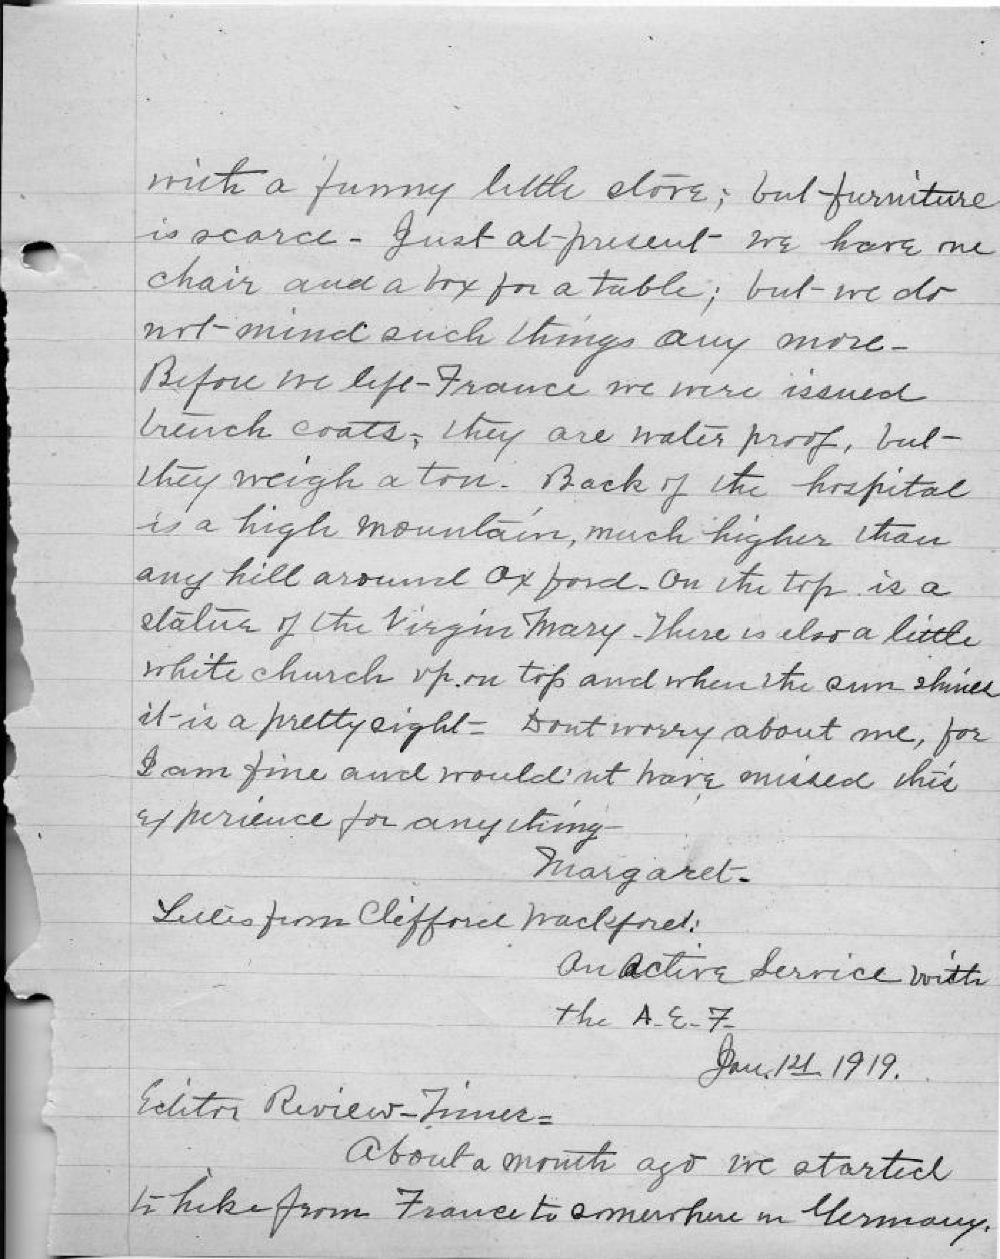 with a funny little stove; but furniture
is scarce - Just at present we have one
chair and a box for a table; but we do
not mind such things any more -
Before we left France we were issued
trench coats; they are water proof, but
they weigh a ton. Back of the hospital
is a high mountain, much higher than
any hill around Oxford. On the top is a
statue of the Virgin Mary. There is also a little
white church up on top and when the sun shines
it is a pretty sight - Dont worry about me, for
I am fine and would'nt have missed this
experience for anything -
Margaret.
from Clifford Wackford:
On Active Service with
the A. E. F.
Jan. 1919.
Editor Review-Times =
About a month ago we started
to hike from France to somewhere in Germany.